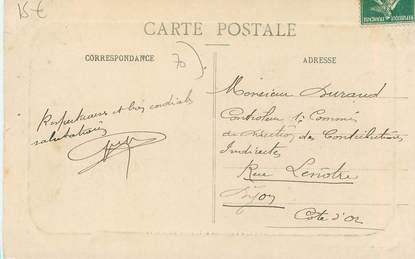 15€
CARTE POSTALE
CORRESPONDANCE
70
ADRESSE
Respectueuses et bien cordiales
salutations
Monsieur Durand
Contrôleur 1er Commis
de Direction des Contributions
Indirectes
Rue Lenôtre
Dijon
Côte d'Or